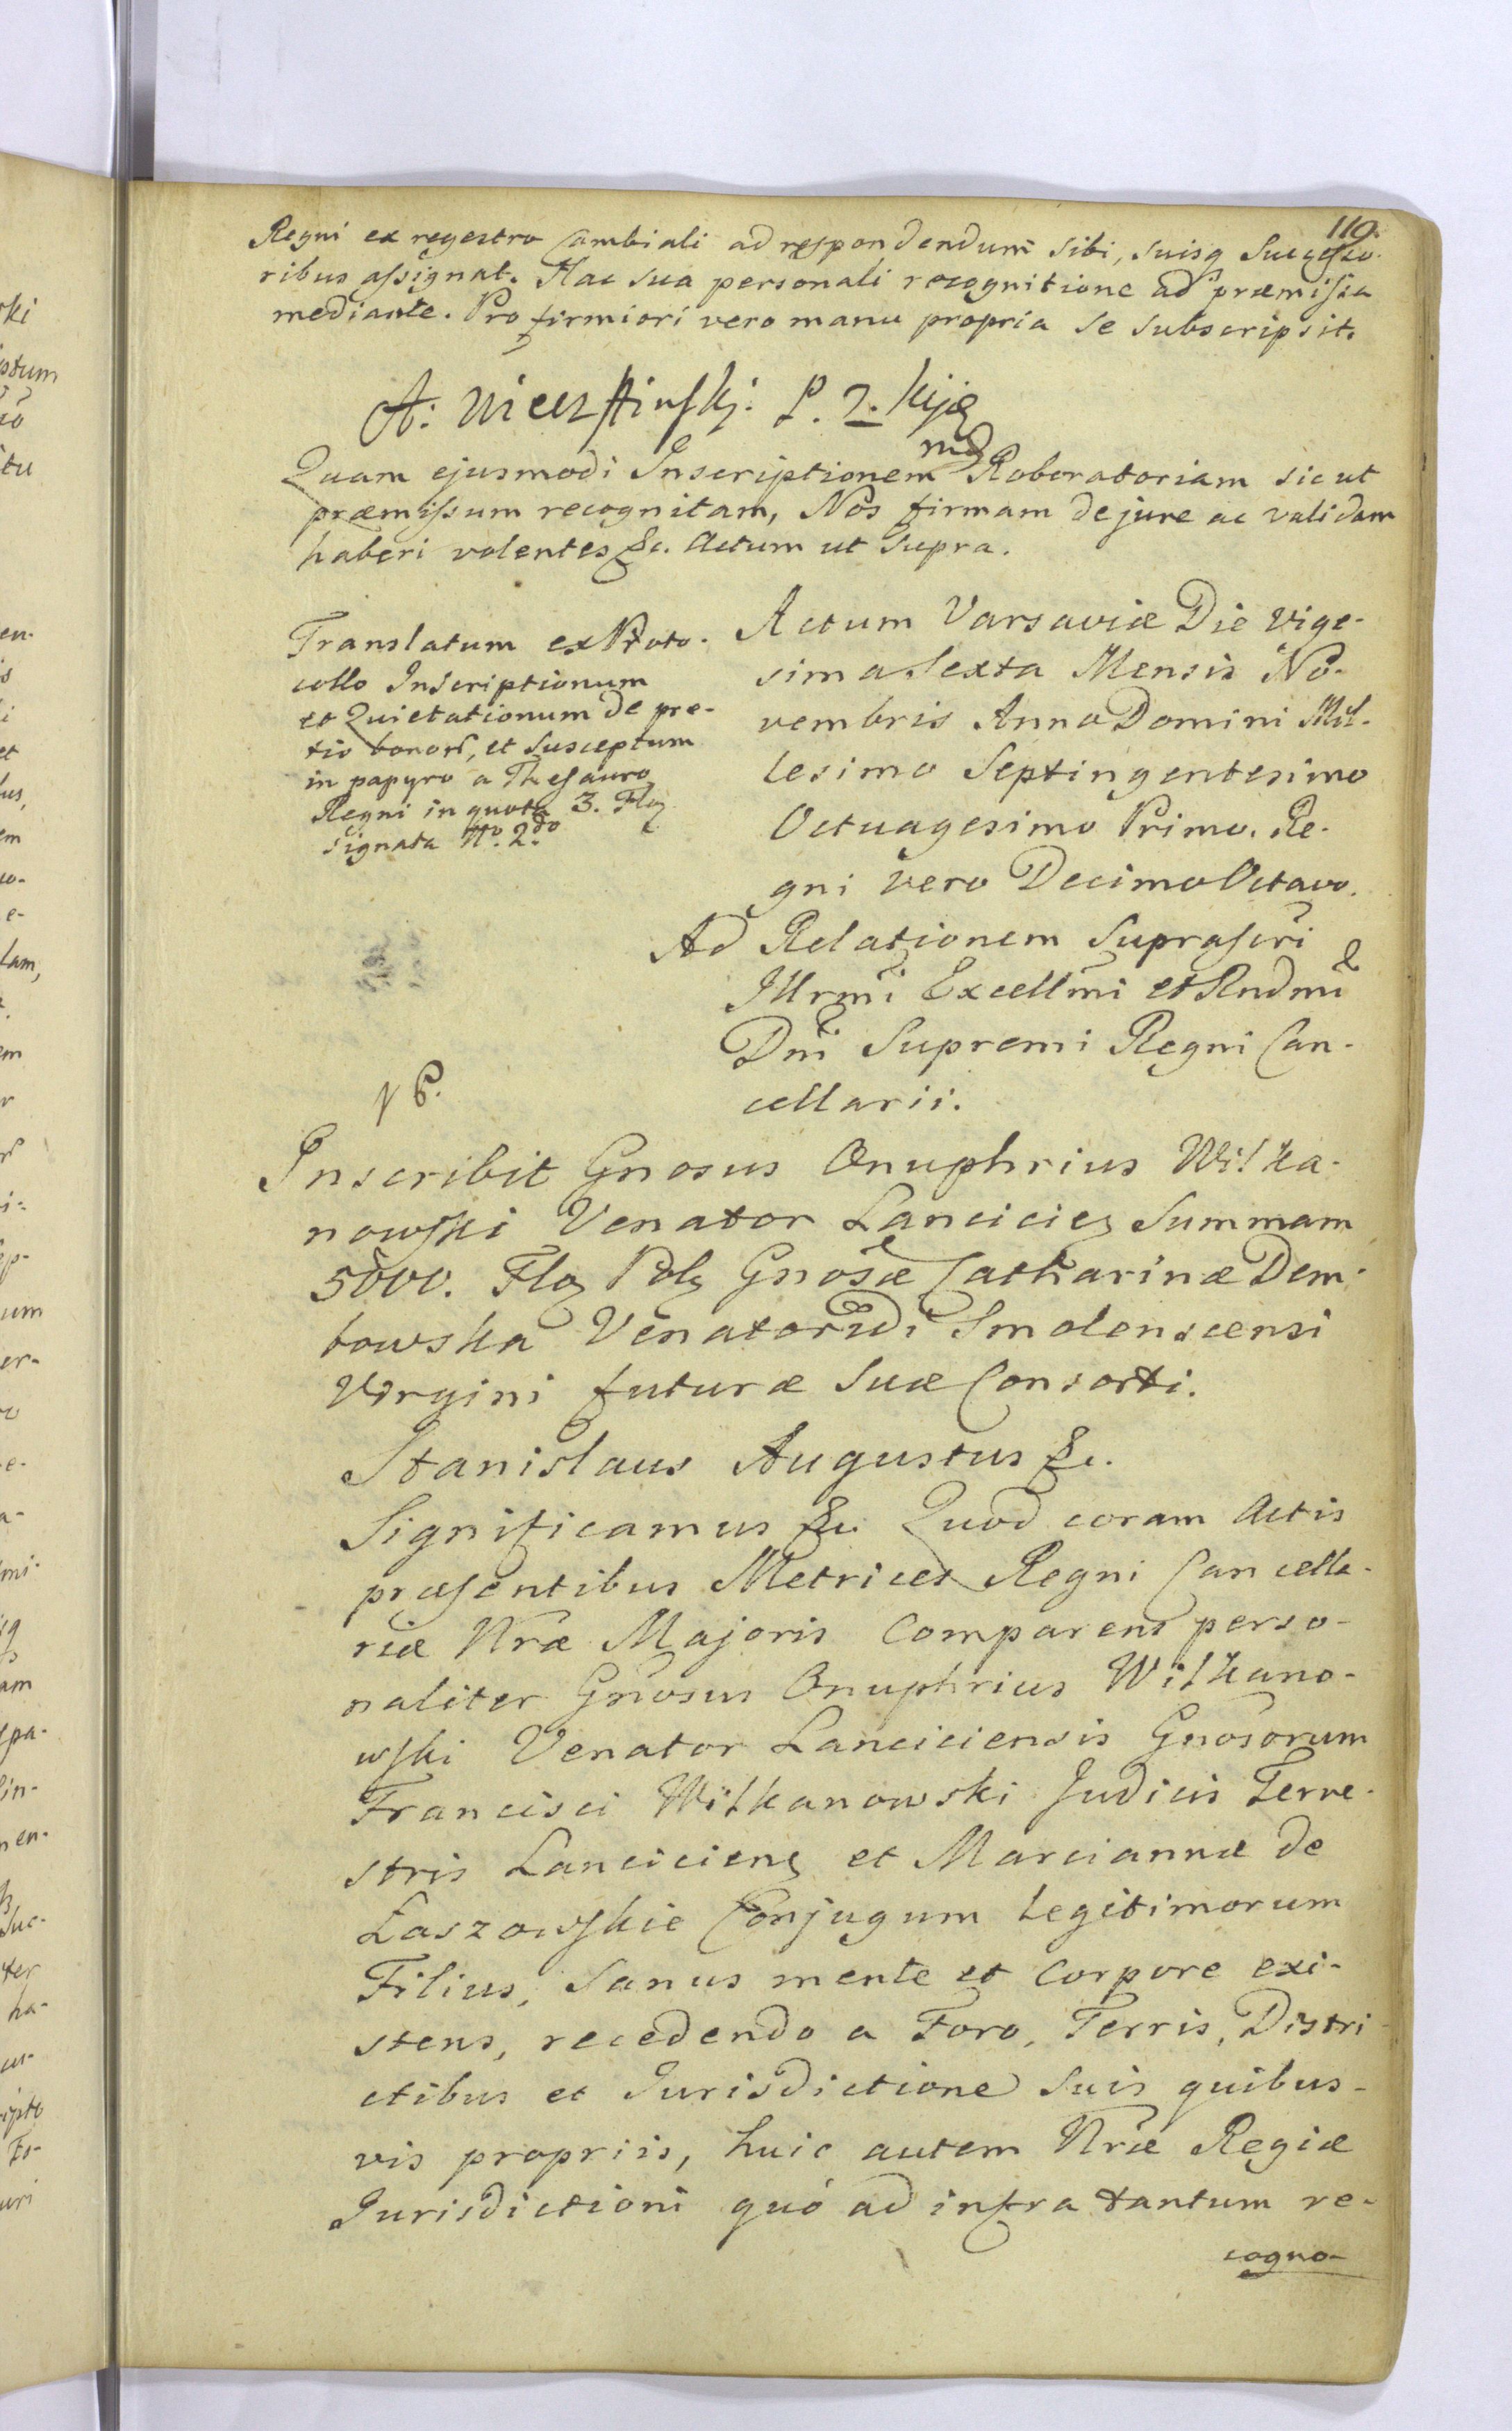 119.
Regni ex regestro Cambiali ad respondendum sibi, suisq Successo-
ribus assignat. Hac sua personali recognitione ad præmissa
mediante. Pro firmiori vero manu propria se subscripsit.
Quam ejusmodi Inscriptionem Roboratoriam sic ut
præmissum recognitam, Nos firmam de jure ac validam
haberi volentes &c. Actum ut supra.
Translatum ex Proto-
collo Inscriptionum
et Quietationum de pre-
tio bonor, et susceptum
in papyro a Thesauro
Regni in quota 3. Flo
signata No. 2do
Actum Varsaviæ Die Vige-
sima Sexta Mensis No-
vembris Anno Domini Mil-
lesimo Septingentesimo
Octuagesimo Primo. Re-
gni vero Decimo Octavo.
Ad Relationem Suprascri
Illrmi Excellmi et Rndmi
Dni Supremi Regni Can-
cellarii.
Inscribit Gnosus Onuphrius Witka-
nowski Venator Lancicien Summam
5000. Flo Pol Gnosæ Catharinæ Dem-
bowska Venatoridi Smolenscensi
Virgini futuræ Suæ Consorti.
Stanislaus Augustus &c.
Significamus &c. Quod coram Actis
præsentibus Metrices Regni Cancella-
riæ Nræ Majoris Comparens perso-
naliter Gnosus Onuphrius Witkano-
wski Venator Lanciciensis Gnosorum
Francisci Witkanowski Judicis Terre-
stris Lancicien et Marciannæ de
Łaszowskie Conjugum Legitimorum
Filius, Sanus mente et Corpore exi-
stens, recedendo a Foro, Terris, Distri-
ctibus et Jurisdictione Suis quibus-
vis propriis, huic autem Nræ Regiæ
Jurisdictioni quó ad infra tantum re-
cogno-